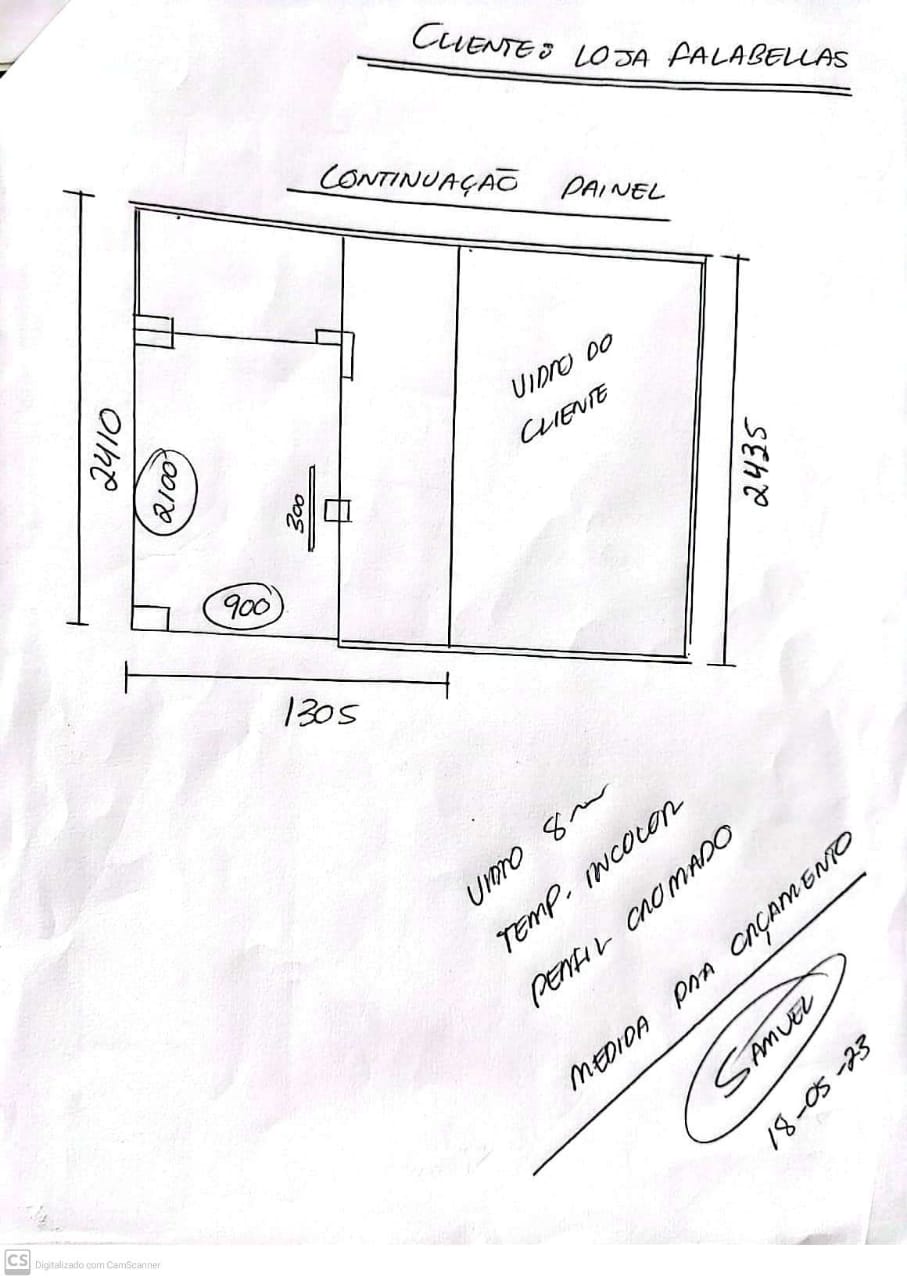 CLIENTE: LOJA FALABELLAS
CONTINUAÇÃO PAINEL
VIDRO DO
CLIENTE
2410
2100
300
2435
900
1305
VIDRO 8mm
TEMP. INCOLOR
PERFIL CROMADO
MEDIDA PRA ORÇAMENTO
SAMUEL
18-05-23
CS Digitalizado com CamScanner